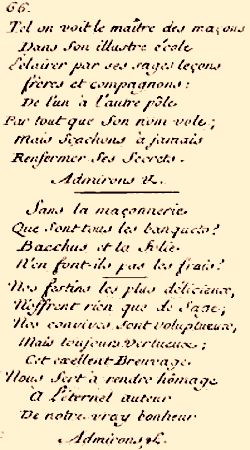 66.
Tel on voit le maître des maçons
Dans Son illustre école
Eclairer par ses sages leçons
frères et compagnons:
De l'un à l'autre pôle
Par tout que Son nom vole;
Mais Sçachons à jamais
Renfermer Ses Secrets.
Admirons &.
Sans la maçonnerie
Que Sont tous les banquets?
Bacchus et la Folie
N'en font-ils pas les frais?
Nos festins les plus délicieux,
N'offrent rien que de Sage;
Nos convives Sont voluptueux,
Mais toujours vertueux;
Cet excellent Breuvage
Nous Sert à rendre hômage
À L'éternel auteur
De notre vray bonheur
Admirons, &.